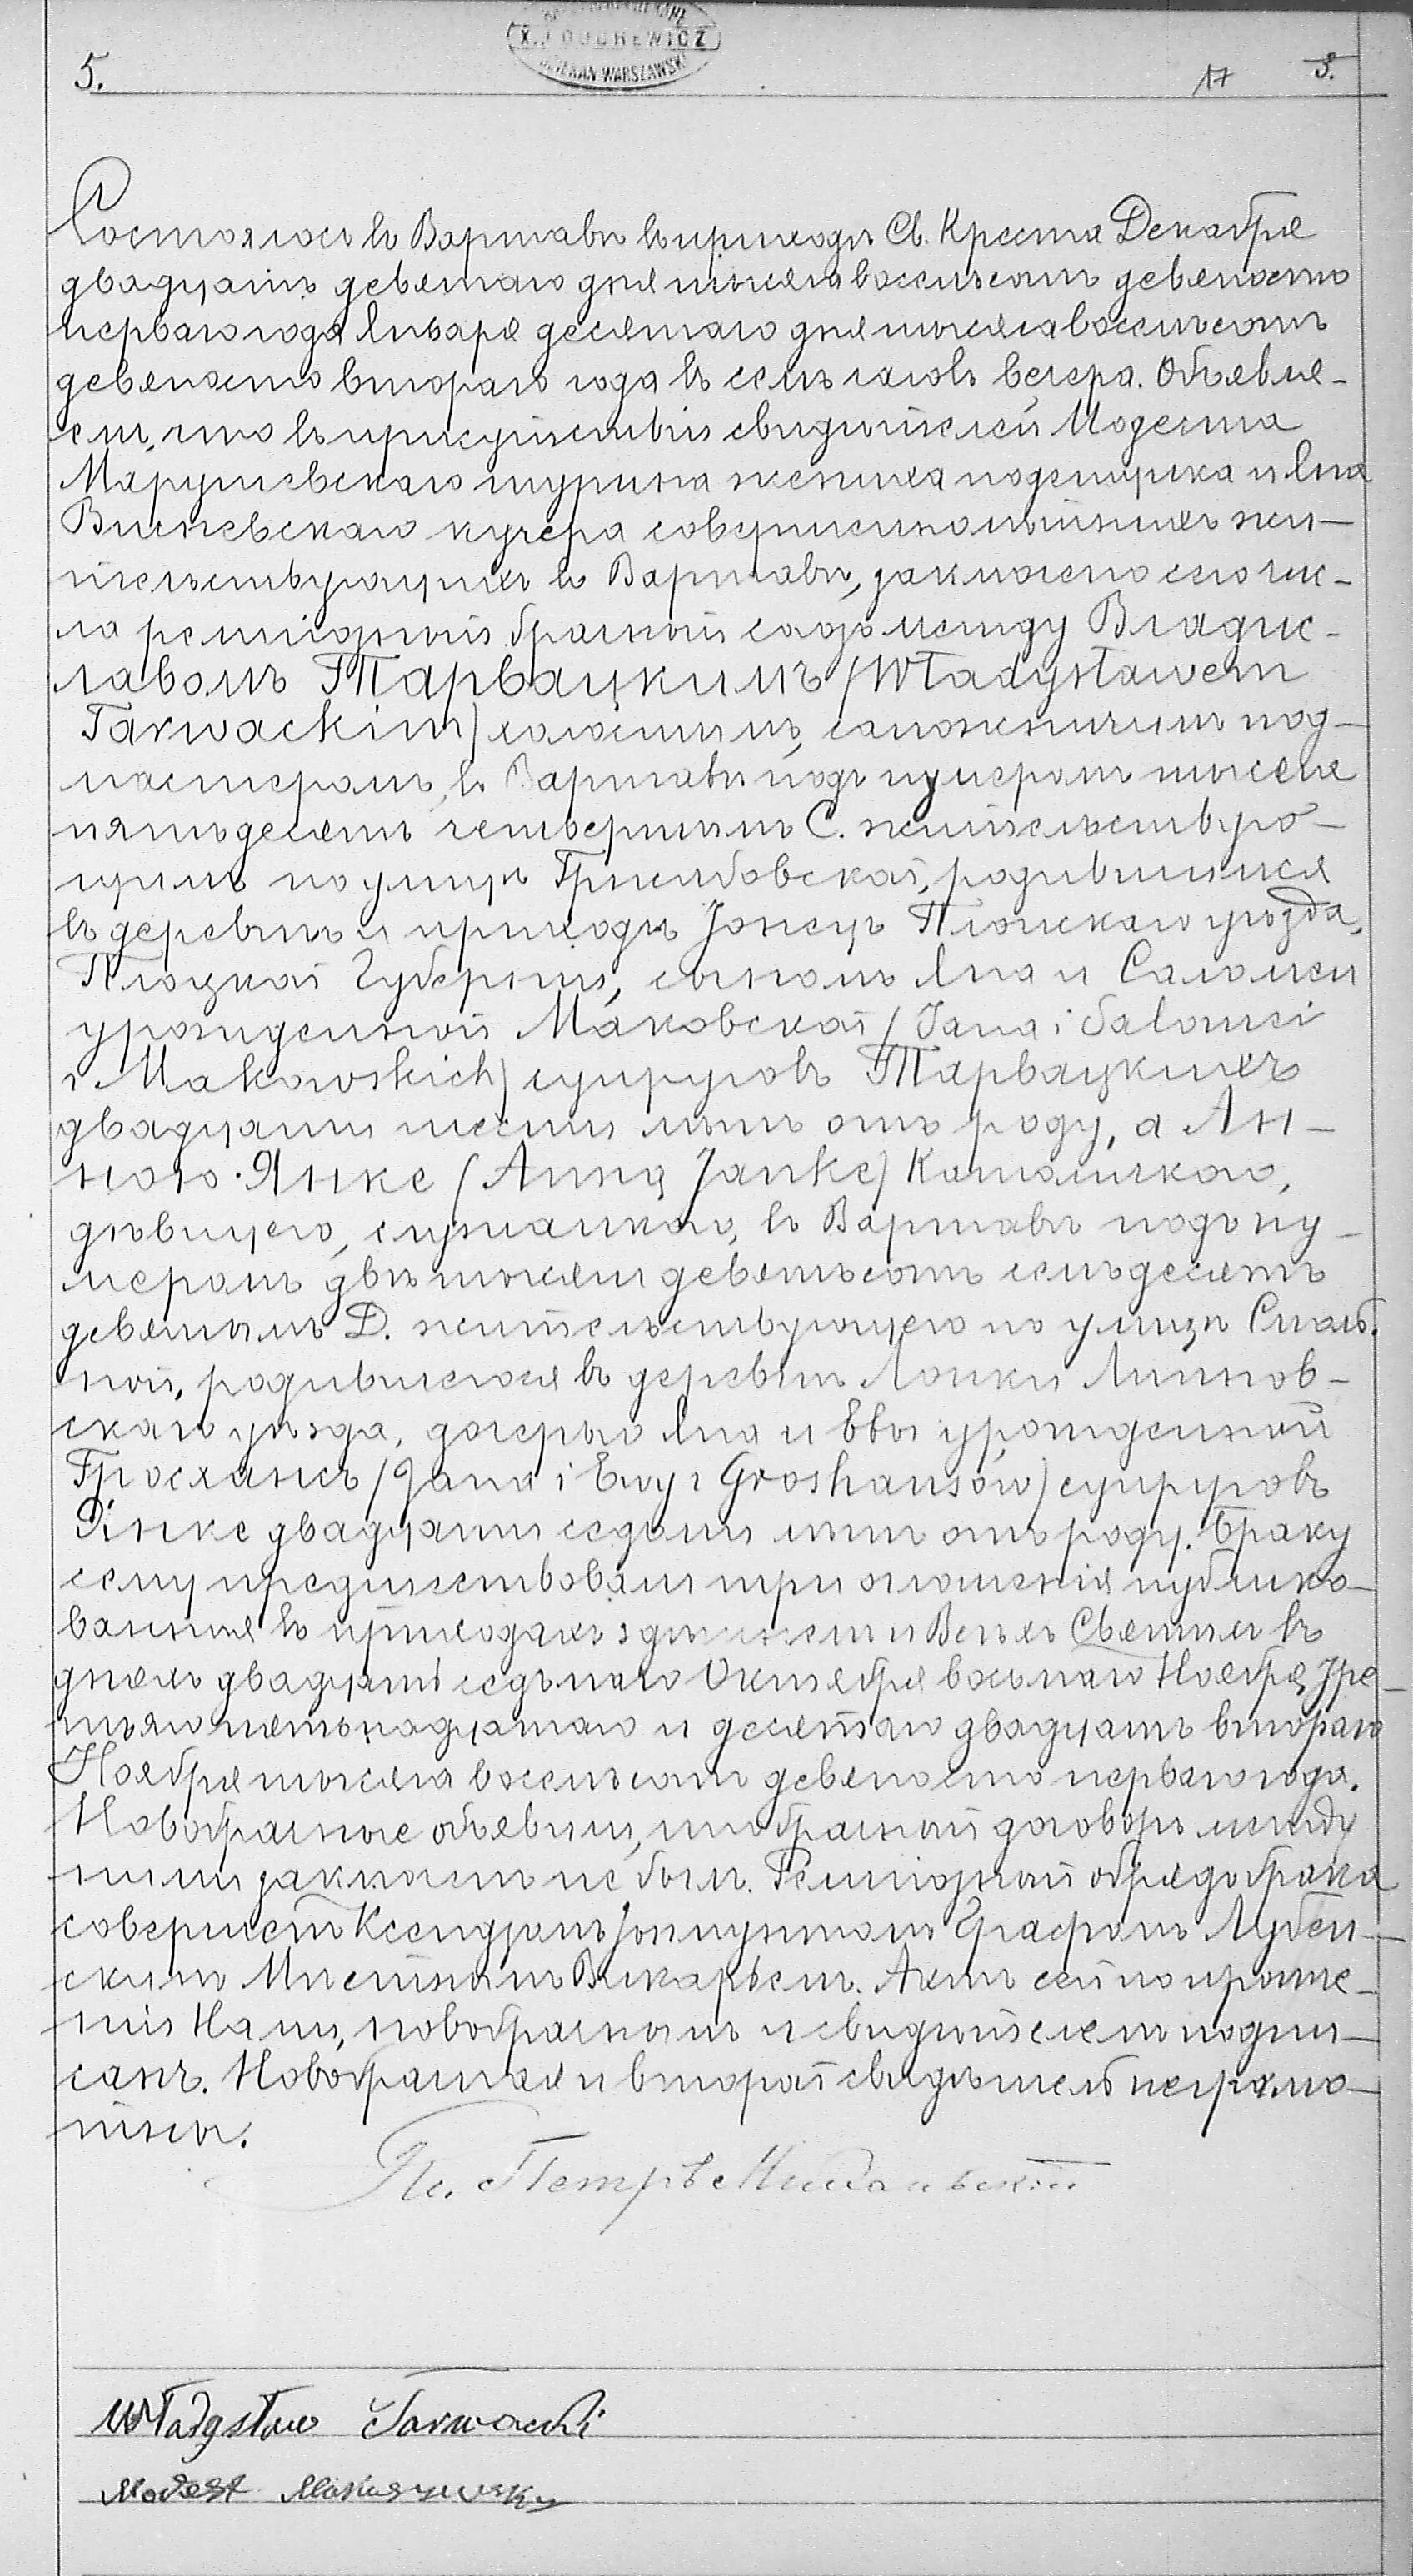 X. J. DUDREWICZ
DZIEKAN WARSZAWSKI
5.
17 5.
Состоялось въ Варшавѣ въ приходѣ Св. Креста Декабря
двадцать девятаго дня тысяча восемьсотъ девяносто
перваго года Января десятаго дня тысяча восемьсотъ
девяносто втораго года въ семь часовъ вечера. Объявля-
ем, что въ присутствіи свидѣтелей Модеста
Марушевскаго шурина жениха поденщика и Яна
Вишневскаго кучера совершеннолѣтнихъ жи-
тельствующихъ въ Варшавѣ, заключено сего чис-
ла религіозный брачный союзъ между Владис-
лавомъ Тарвацкимъ /Władysławem
Tarwackim/ холостымъ, сапожничимъ под-
мастеромъ, въ Варшавѣ подъ нумеромъ тысяча
пятьдесятъ четвертымъ С. жительствую-
щимъ по улицѣ Гржибовской, родившимся
въ деревнѣ и приходѣ Іонецъ Плонскаго уѣзда,
Плоцкой Губерніи, сыномъ Яна и Саломеи
урожденной Маковской /Jana i Salomei
z Makowskich/ супруговъ Тарвацкихъ
двадцати шести лѣтъ отъ роду, а Ан-
ною Янке /Anną Janke/ Католичкою,
дѣвицею, служанкою, въ Варшавѣ подъ ну-
меромъ двѣ тысячи девятьсотъ семьдесятъ
девятымъ D. жительствующею по улицѣ Смоль-
ной, родившеюся въ деревнѣ Лонки Липнов-
скаго уѣзда, дочерью Яна и Евы урожденной
Гросхансъ /Jana i Ewy z Groshansów/ супруговъ
Янке двадцати седьми лѣтъ отъ роду. Браку
сему предшествовали три оглашенія публико-
ванныя въ приходахъ здѣшнемъ и Всѣхъ Святыхъ въ
дняхъ двадцать седьмаго Октября восьмаго Ноября, Тре-
тьяго пятьнадцатаго и десятаго двадцать втораго
Ноября тысяча восемьсотъ девяносто перваго года.
Новобрачные объявили, что брачный договоръ между
ними заключенъ не былъ. Религіозный обрядъ брака
совершенъ Ксендзомъ Графомъ Лубен-
скимъ Мѣстнымъ Викаріемъ. Актъ сей по прочте-
ніи Нами, новобрачнымъ и свидѣтелемъ подпи-
санъ. Новобрачная и второй свидѣтель неграмо-
тны.
Петръ
Władysław Tarwacki
Modest